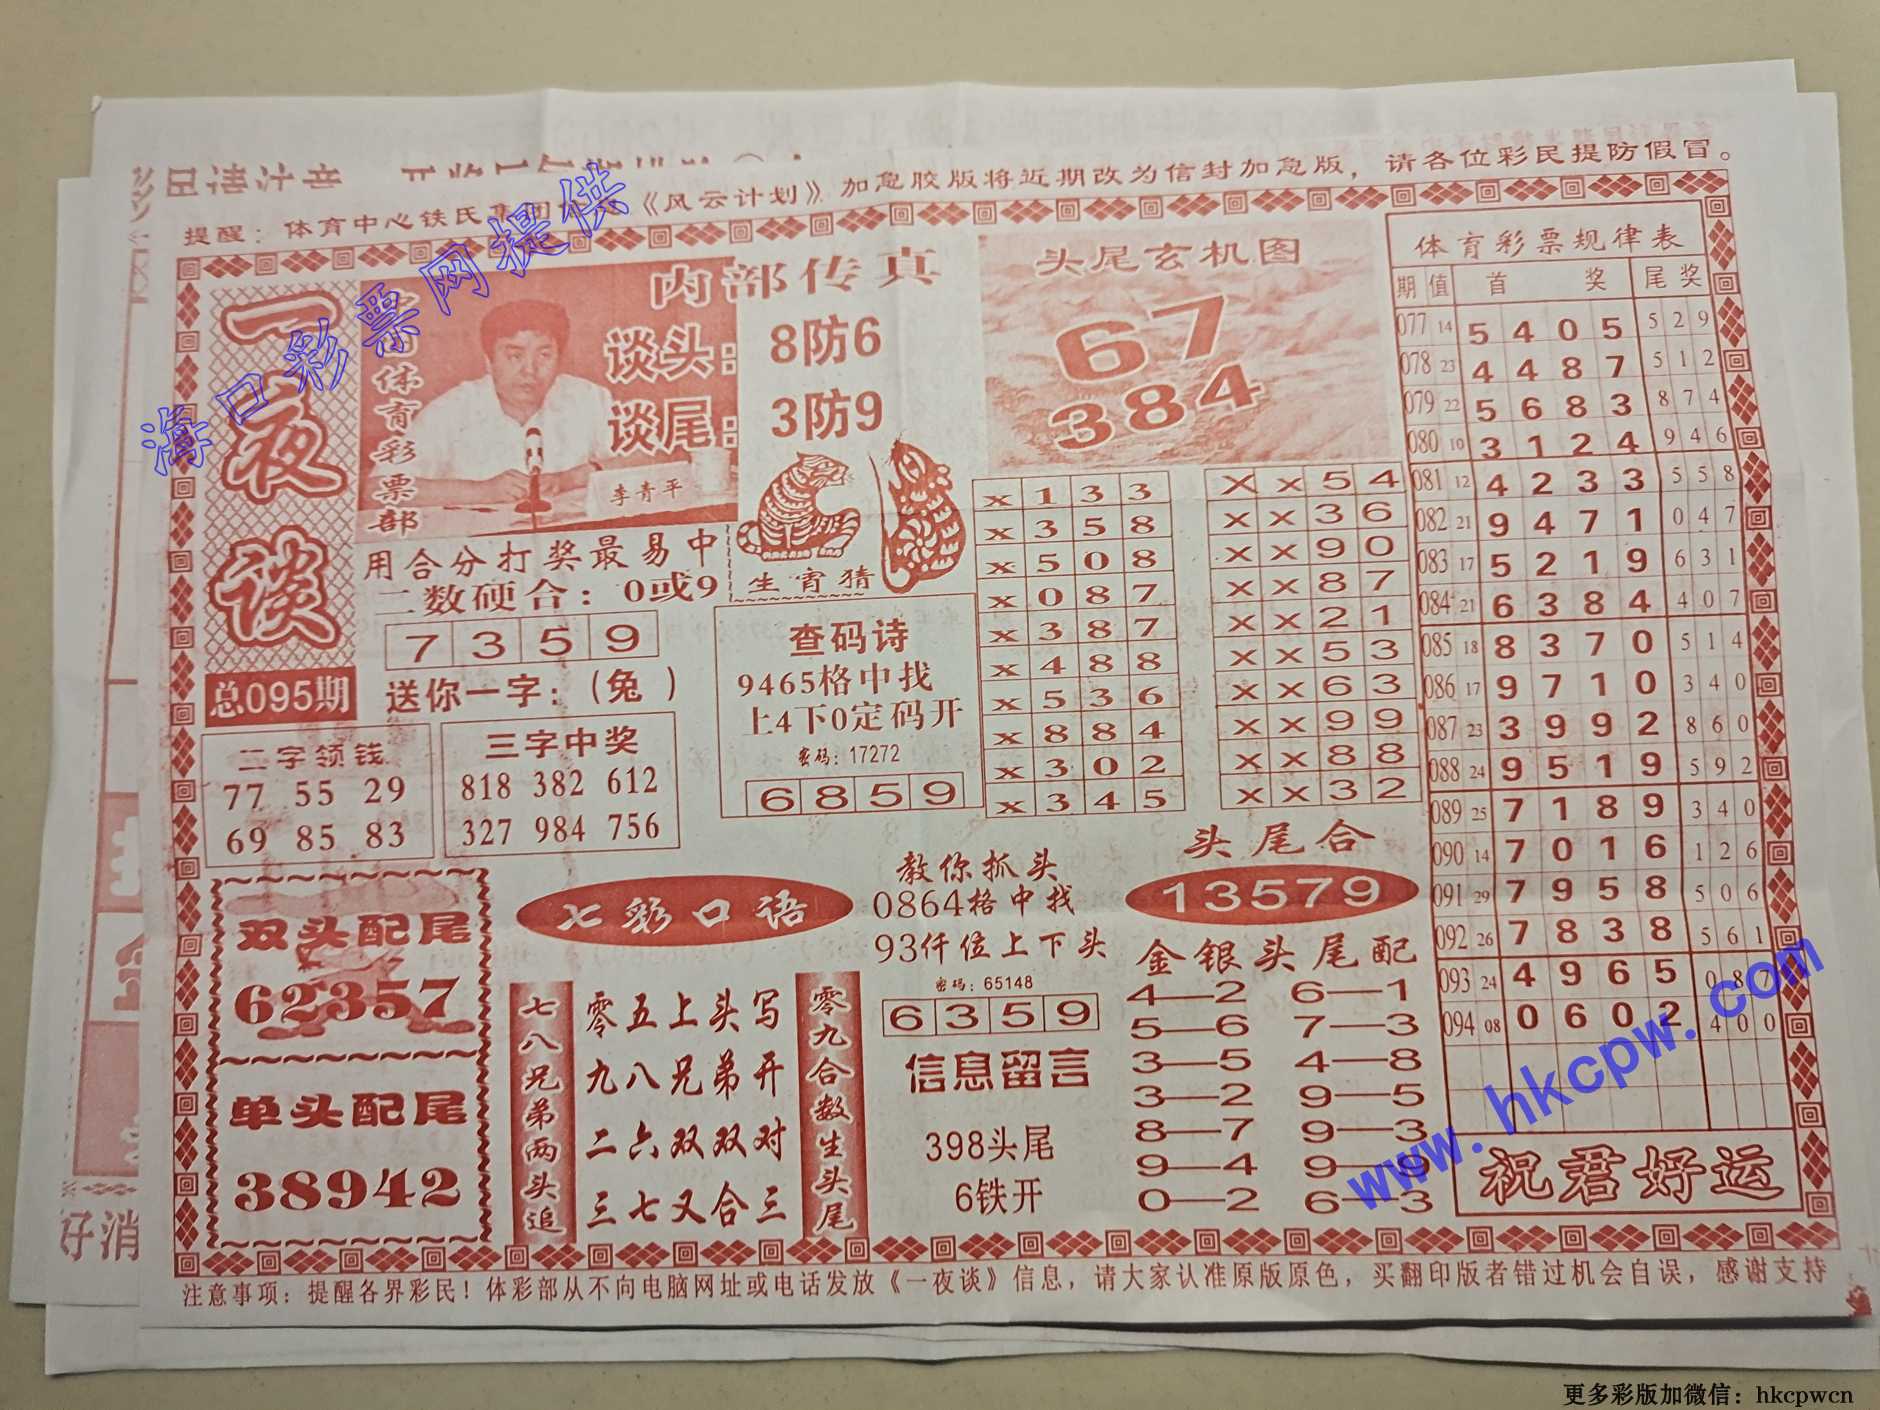 提醒：体育中心铁民集团
《风云计划》加急胶版将近期改为信封加急版，请各位彩民提防假冒。
海口彩票网提供
一夜谈
总095期
体育彩票部
李青平
内部传真
谈头：8防6
谈尾：3防9
用合分打奖最易中
二数硬合：0或9
7 3 5 9
送你一字：（兔）
生宵猜
查码诗
9465格中找
上4下0定码开
密码：17272
6 8 5 9
二字领钱
77 55 29
69 85 83
三字中奖
818 382 612
327 984 756
头尾玄机图
67
384
x 1 3 3
x 3 5 8
x 5 0 8
x 0 8 7
x 3 8 7
x 4 8 8
x 5 3 6
x 8 8 4
x 3 0 2
x 3 4 5
X x 5 4
x x 3 6
x x 9 0
x x 8 7
x x 2 1
x x 5 3
x x 6 3
x x 9 9
x x 8 8
x x 3 2
双头配尾
62357
单头配尾
38942
七彩口语
七八兄弟两头追
零五上头写
九八兄弟开
二六双双对
三七又合三
零九合数生头尾
教你抓头
0864格中找
93仟位上下头
密码：65148
6 3 5 9
信息留言
398头尾
6铁开
头尾合
13579
金银头尾配
4—2 6—1
5—6 7—3
3—5 4—8
3—2 9—5
8—7 9—3
9—4 9—9
0—2 6—3
体育彩票规律表
期 值 首 奖 尾 奖
077 14 5 4 0 5 5 2 9
078 23 4 4 8 7 5 1 2
079 22 5 6 8 3 8 7 4
080 10 3 1 2 4 9 4 6
081 12 4 2 3 3 5 5 8
082 21 9 4 7 1 0 4 7
083 17 5 2 1 9 6 3 1
084 21 6 3 8 4 4 0 7
085 18 8 3 7 0 5 1 4
086 17 9 7 1 0 3 4 0
087 23 3 9 9 2 8 6 0
088 24 9 5 1 9 5 9 2
089 25 7 1 8 9 3 4 0
090 14 7 0 1 6 1 2 6
091 29 7 9 5 8 5 0 6
092 26 7 8 3 8 5 6 1
093 24 4 9 6 5 0 8 7
094 08 0 6 0 2 4 0 0
www.hkcpw.com
祝君好运
好消
注意事项：提醒各界彩民！体彩部从不向电脑网址或电话发放《一夜谈》信息，请大家认准原版原色，买翻印版者错过机会自误，感谢支持
更多彩版加微信：hkcpwcn